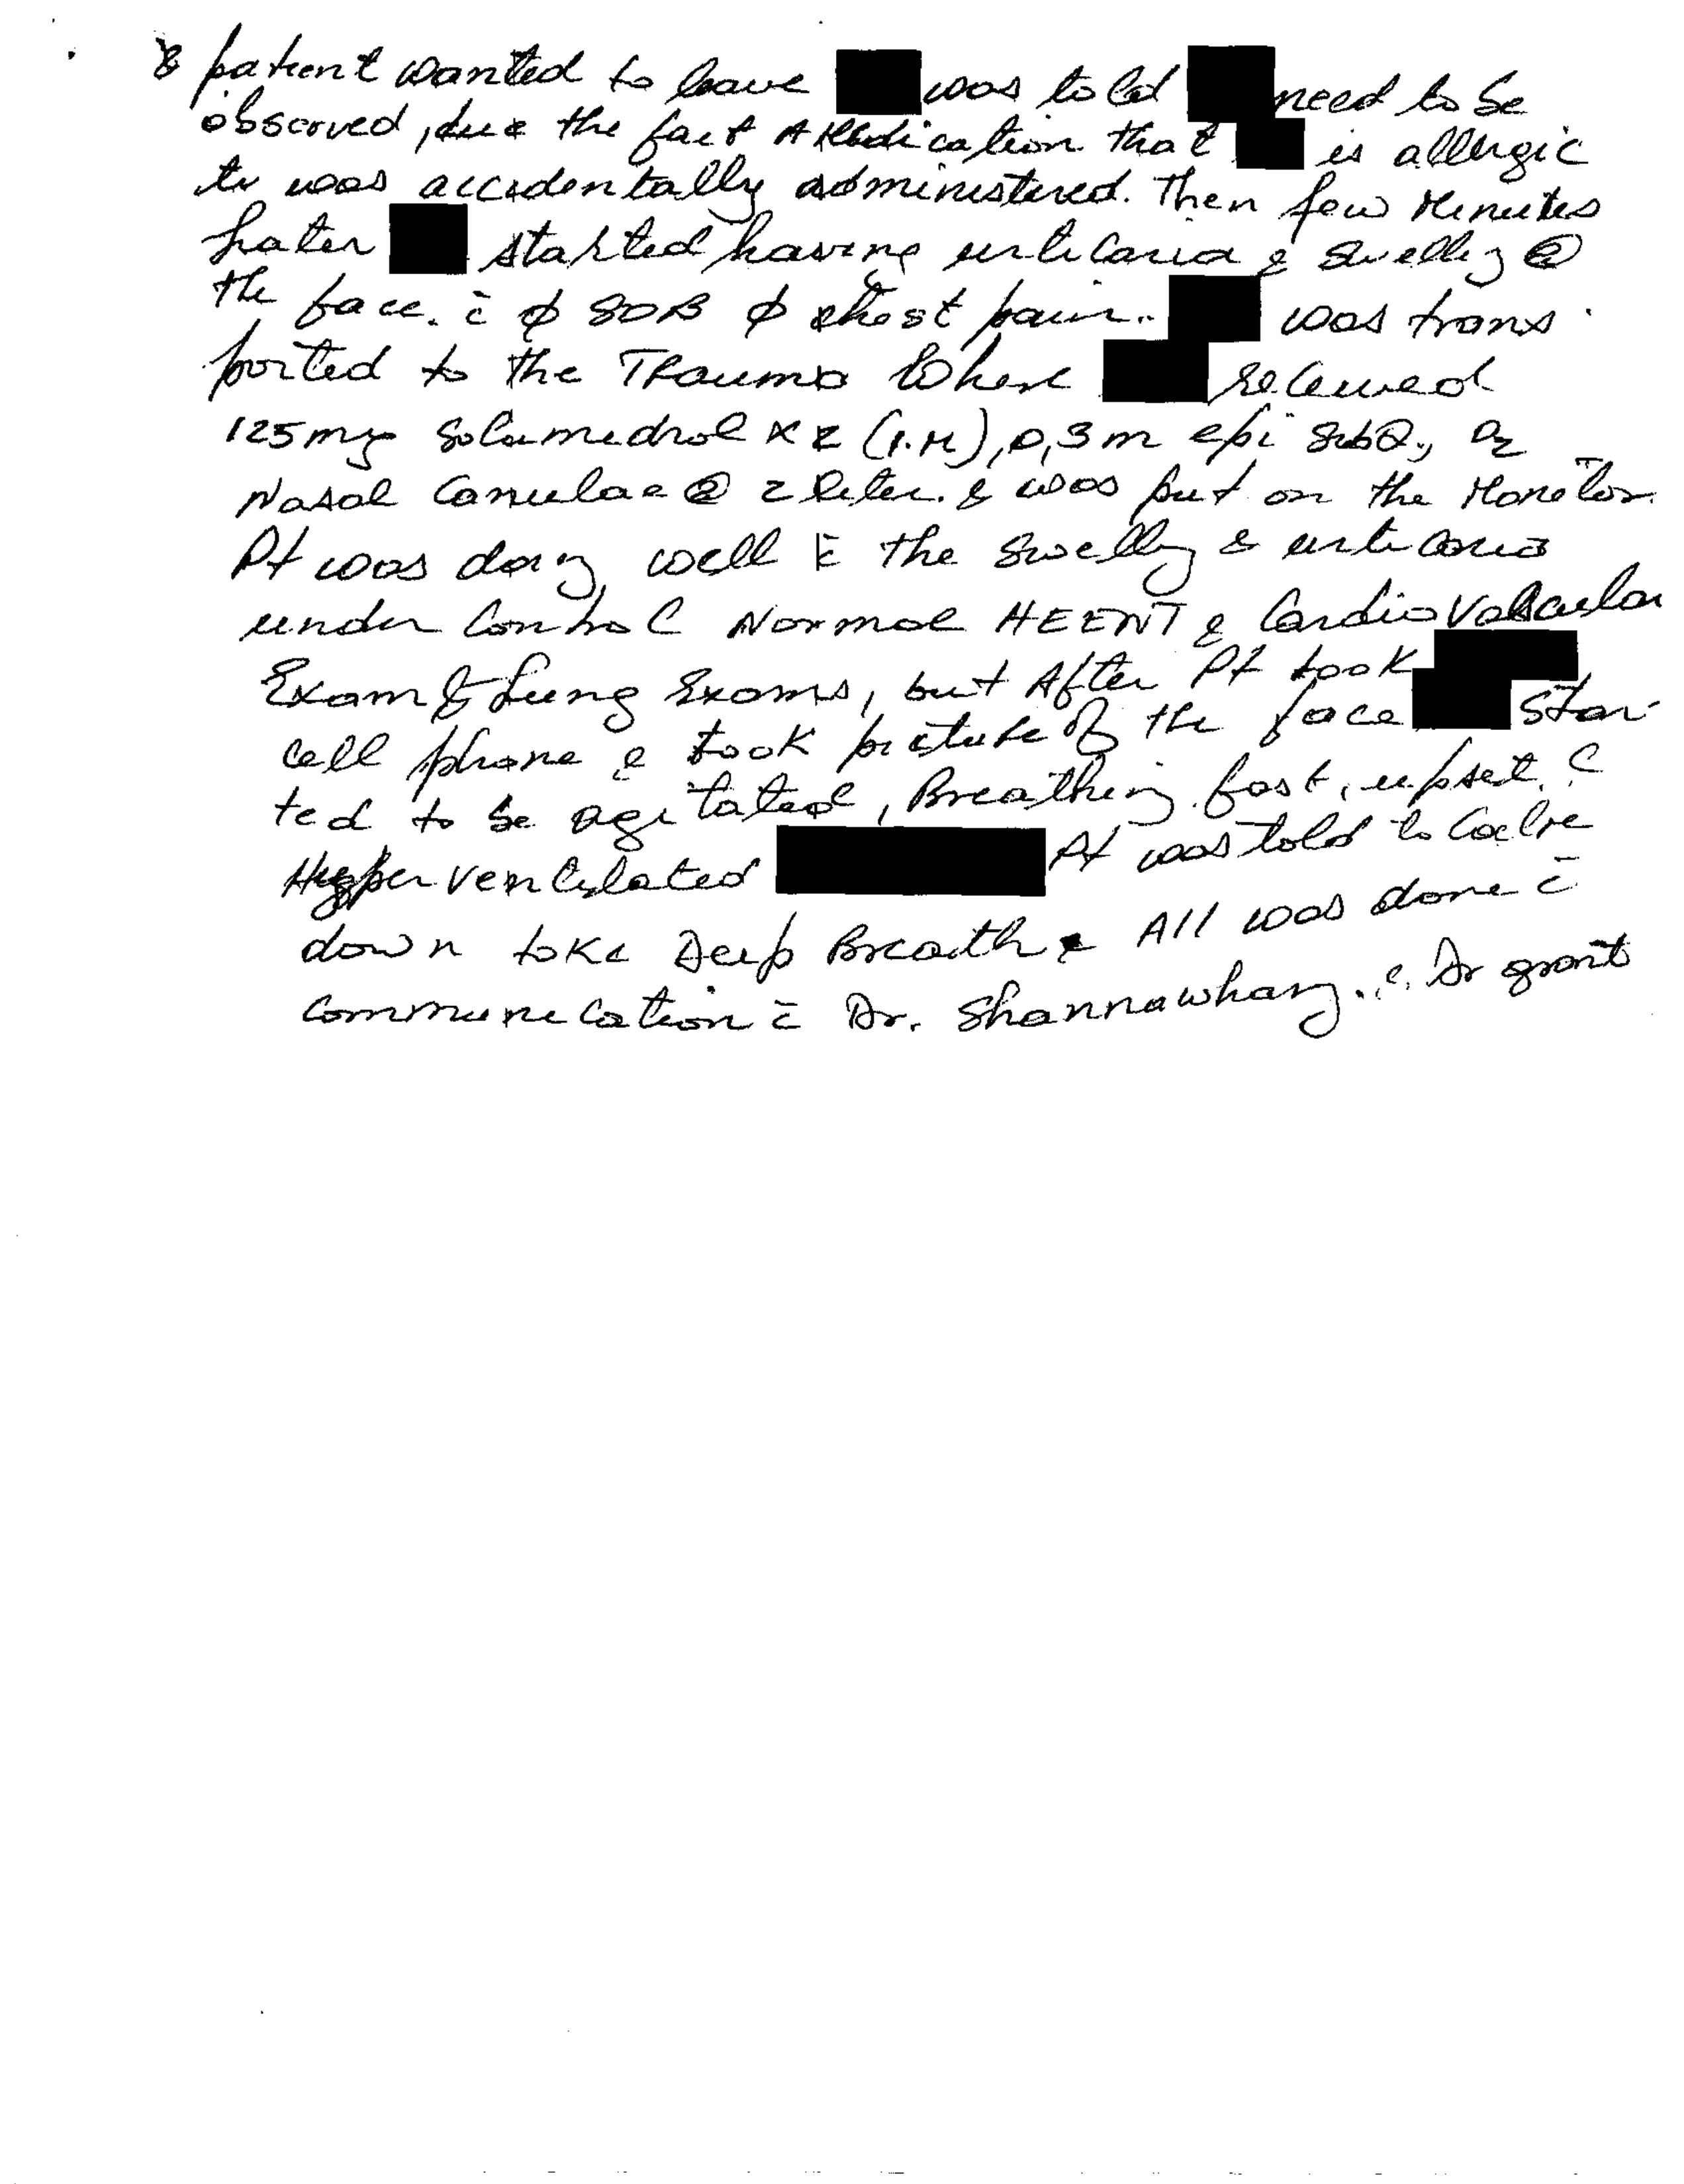 & patient wanted to leave was told need to be
observed, due the fact A Medication that is allergic
to was accidentally administered. Then few Minutes
Later started having urticaria & Swelling @
the face. c̄ ø SOB ø chest pain. was trans
ported to the Trauma Where received
125mg Solumedrol x 2 (I.M), 0,3m epi SubQ, O2
Nasal Canulae @ 2 liter. & was put on the Monitor.
Pt was doing well c̄ the Swelling & urticaria
under Control Normal HEENT &
Exam & Lung Exams, but After Pt took
cell phone & took picture of the face star
ted to be agitated, Breathing fast, upset.
Hyperventilated Pt was told to
down take Deep Breath All was done c̄
communication c̄ Dr. Shannawhany. Dr grant